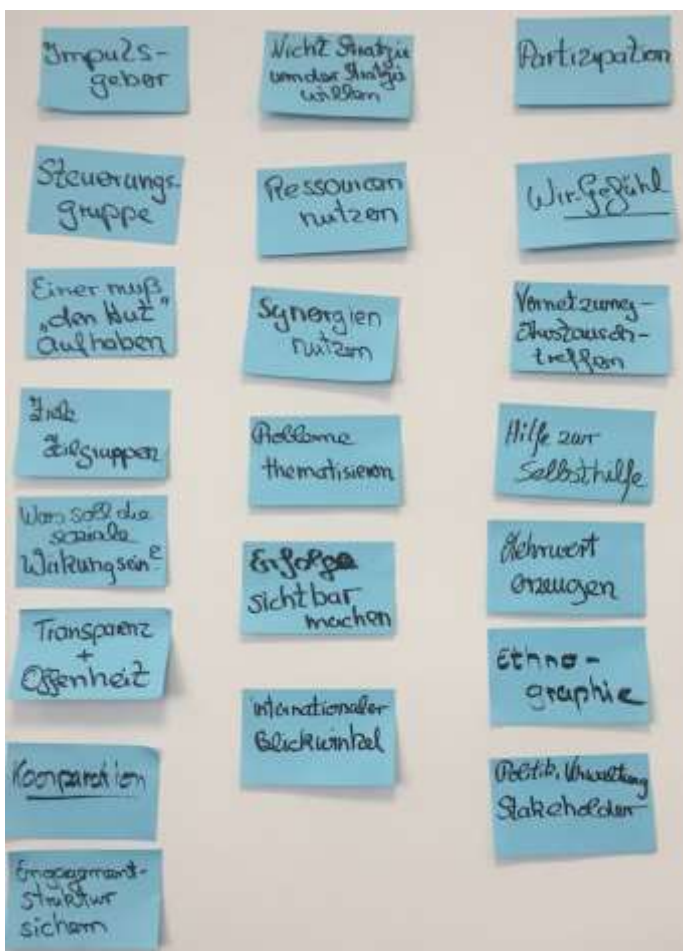 Impuls-
geber
Steuerungs-
gruppe
Einer muß
„den Hut"
aufhaben
Ziele
Zielgruppen
Was soll die
soziale
Wirkung sein?
Transparenz
+
Offenheit
Kooperation
Engagement-
struktur
sichern
Nicht Strategie
um der Strategie
willen
Ressourcen
nutzen
Synergien
nutzen
Probleme
thematisieren
Erfolge
sichtbar
machen
internationaler
Blickwinkel
Partizipation
Wir-Gefühl
Vernetzung-
Austausch-
treffen
Hilfe zur
Selbsthilfe
Mehrwert
erzeugen
Ethno-
graphie
Politik, Verwaltung
Stakeholder